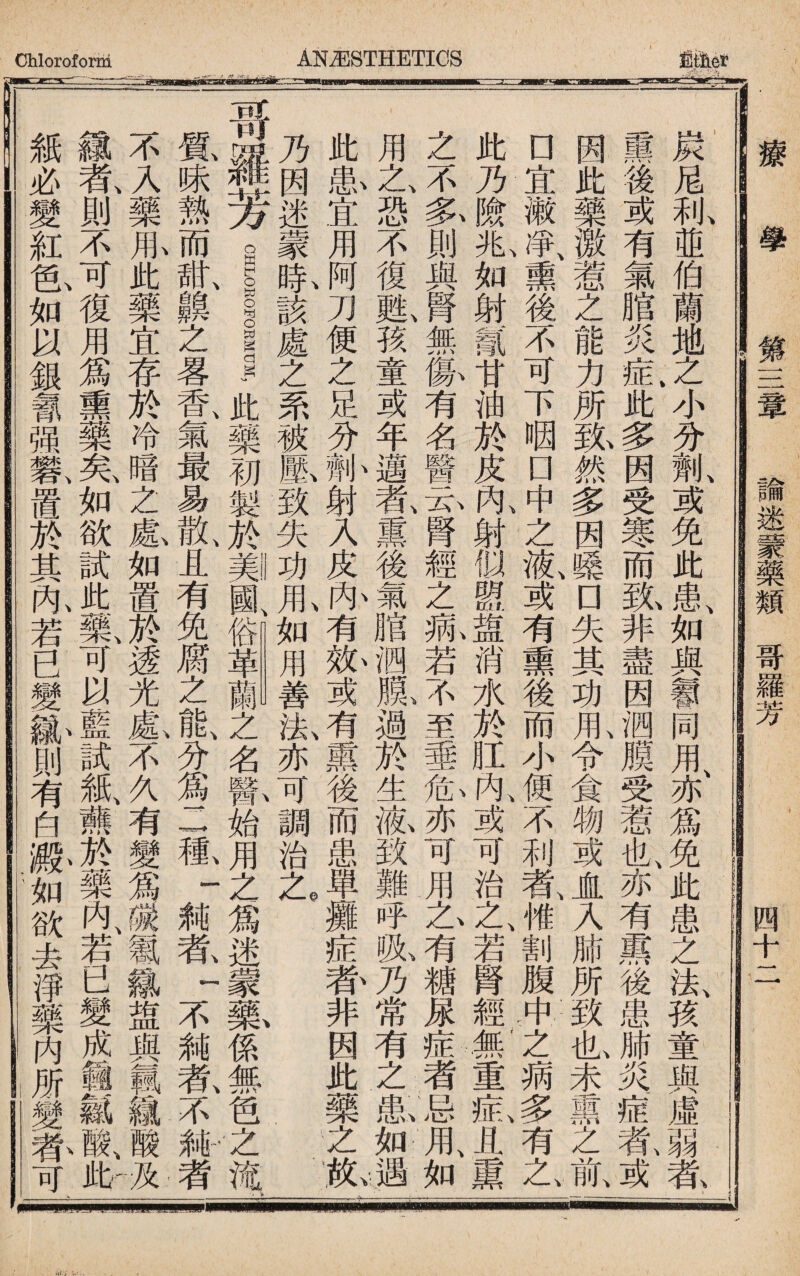 Chloroform
ANÆSTHETICS
Ether
療學 第三章 論迷蒙藥類 哥羅芳 四十二
炭尼利、並伯蘭地之小分劑、或免此患、如與䨺同用、亦爲免此患之法、孩童與虛弱者、
熏後或有氣脂炎症、此多因受寒而致、非盡因泗膜受惹也、亦有熏後患肺炎症者、或
因此藥激惹之能力所致、然多因嗓口失其功用、令食物或血入肺所致也、未熏之前、
口宜漱凈、熏後不可下咽口中之液、或有熏後而小便不利者、惟割腹中之病多有之、
此乃險兆、如射甘油於皮內、射似盬盐消水於肛內、或可治之、若腎經無重症、且熏
之不多、則與腎無傷、有名醫云、腎經之病、若不至垂危、亦可用之、有糖尿症者忌用、如
用之、恐不復甦、孩童或年邁者、熏後氣脂泗膜、過於生液、致難呼吸、乃常有之患、如遇
此患、宜用阿刀便之足分劑、射入皮內、有效、或有熏後而患單癱症者、非因此藥之故、
乃因迷蒙時、該處之系被壓、致失功用、如用善法、亦可調治之。
哥羅芳 CHLOROFORMUM, 此藥初製於美國、俗革蘭之名醫、始用之爲迷蒙藥、係無色之流
質、味熱而甜、鼻臭之畧香、氣最易散、且有免腐之能、分爲二種、一純者、一不純者、不純者
不入藥用、此藥宜存於冷暗之處、如置於透光處、不久有變爲盐與酸及
者、則不可復用爲熏藥矣、如欲試此藥、可以藍試紙、蘸於藥內、若已變成酸、此
紙必變紅色、如以銀强礬、置於其內、若已變、則有白澱、如欲去淨藥內所變者、可